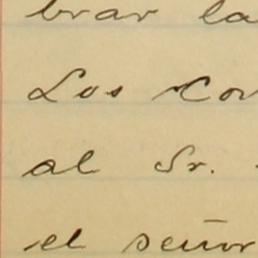 brar la
Los con
al Sr.
el señor